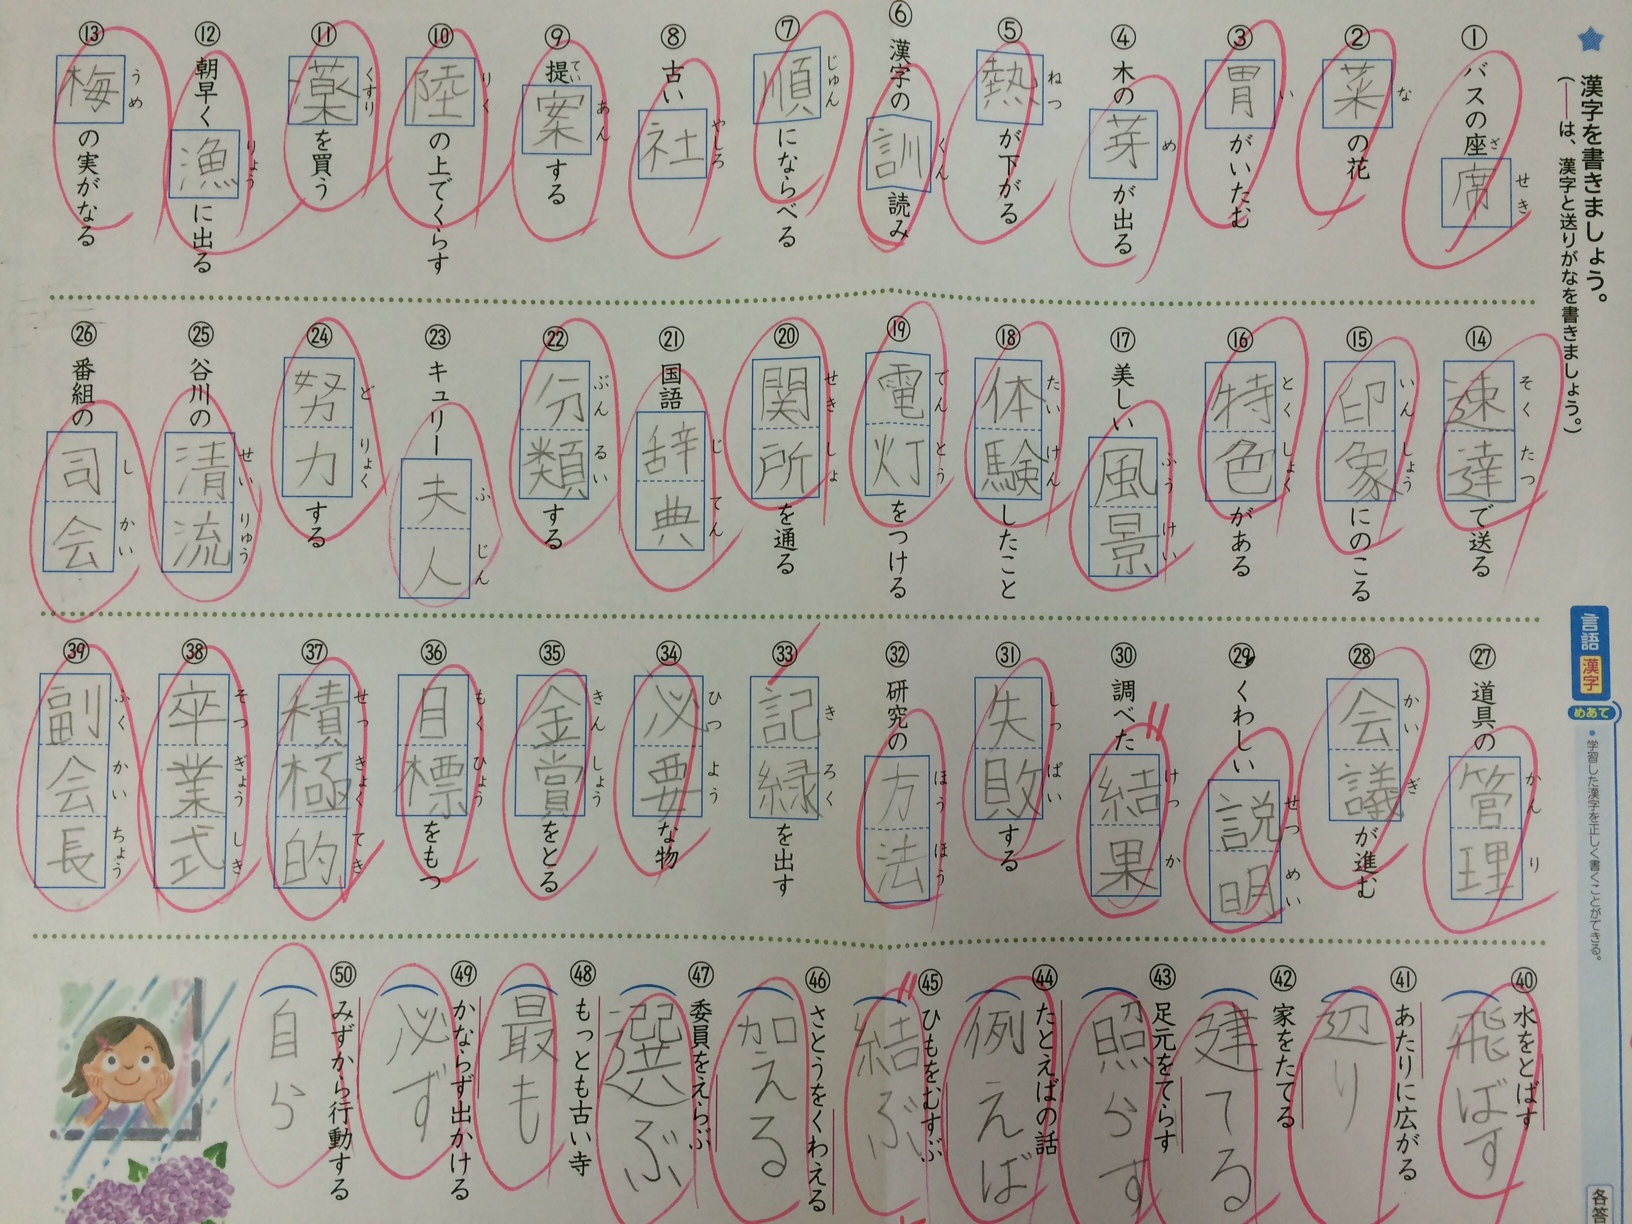 漢字を書きましょう。
(―は、漢字と送りがなを書きましょう。)
①バスの座席
ざせき
②菜の花
な
③胃がいたむ
い
④木の芽が出る
め
⑤熱が下がる
ねつ
⑥漢字の訓読み
くん
⑦順にならべる
じゅん
⑧古い社
やしろ
⑨提案する
ていあん
⑩陸の上でくらす
りく
⑪薬を買う
くすり
⑫朝早く漁に出る
りょう
⑬梅の実がなる
うめ
⑭速達で送る
そくたつ
⑮印象にのこる
いんしょう
⑯特色がある
とくしょく
⑰美しい風景
ふうけい
⑱体験したこと
たいけん
⑲電灯をつける
でんとう
⑳関所を通る
せきしょ
㉑国語辞典
じてん
㉒分類する
ぶんるい
㉓キュリー夫人
ふじん
㉔努力する
どりょく
㉕谷川の清流
せいりゅう
㉖番組の司会
しかい
言語 漢字
めあて
・学習した漢字を正しく書くことができる。
㉗道具の管理
かんり
㉘会議が進む
かいぎ
㉙くわしい説明
せつめい
㉚調べた結果
けっか
㉛失敗する
しっぱい
㉜研究の方法
ほうほう
㉝記緑を出す
きろく
㉞必要な物
ひつよう
㉟金賞をとる
きんしょう
㊱目標をもつ
もくひょう
㊲積極的
せっきょくてき
㊳卒業式
そつぎょうしき
㊴副会長
ふくかいちょう
各答
㊵水をとばす
飛ばす
㊶あたりに広がる
辺り
㊷家をたてる
建てる
㊸足元をてらす
照らす
㊹たとえばの話
例えば
㊺ひもをむすぶ
結ぶ
㊻さとうをくわえる
加える
㊼委員をえらぶ
選ぶ
㊽もっとも古い寺
最も
㊾かならず出かける
必ず
㊿みずから行動する
自ら